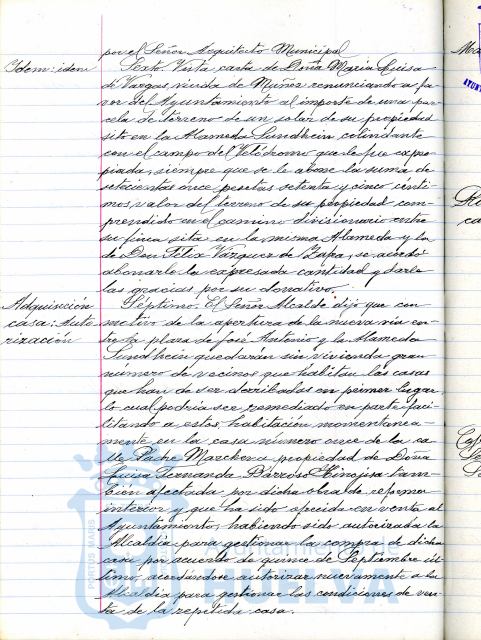 por el Señor Arquitecto Municipal
Idem: idem
Sexto. Vista carta de Doña Maria Luisa
de Vargas, viuda de Muñoz renunciando a fa-
vor del Ayuntamiento al importe de una par-
cela de terreno de un solar de su propiedad
sito en la Alameda Sundheim colindante
con el campo del Velódromo que le fue expro-
piada, siempre que se le abone la suma de
setecientas once pesetas setenta y cinco cénti-
mos, valor del terreno de su propiedad com-
prendido en el camino divisionario entre
su finca sita en la misma Alameda y la
de Don Félix Vázquez de Zapa, se acordó
abonarle la expresada cantidad y darle
las gracias por su donativo.
Adquisición
casa: Auto-
rización
Séptimo. El Señor Alcalde dijo que con
motivo de la apertura de la nueva vía en-
tre la plaza de José Antonio y la Alameda
Sundheim quedarán sin vivienda gran
número de vecinos que habitan las casas
que han de ser derribadas en primer lugar
lo cual podría ser remediado en parte faci-
litando a estos, habitación momentanea-
mente en la casa número once de la ca-
lle Padre Marchena propiedad de Doña
Luisa Fernanda Barroso Hinojosa tam-
bién afectada por dicha obra de reforma
interior y que ha sido ofrecida en venta al
Ayuntamiento, habiendo sido autorizada la
Alcaldía para gestionar la compra de dicha
casa por acuerdo de quince de Septiembre úl-
timo, acordandose autorizar nuevamente a la
Alcaldía para gestionar las condiciones de ven-
ta de la repetida casa.
Ayuntamiento de
HUELVA
PORTUS MARIS